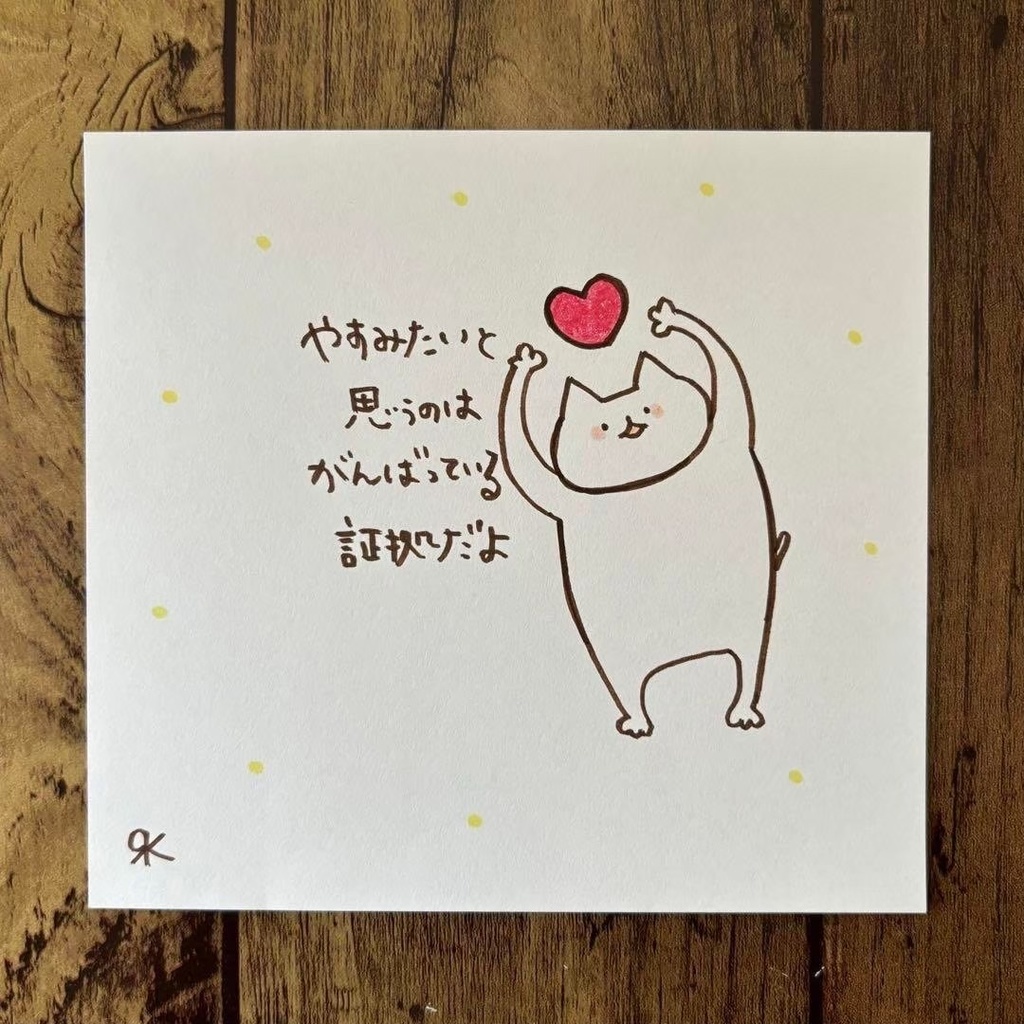 やすみたいと
思うのは
がんばっている
証拠だよ